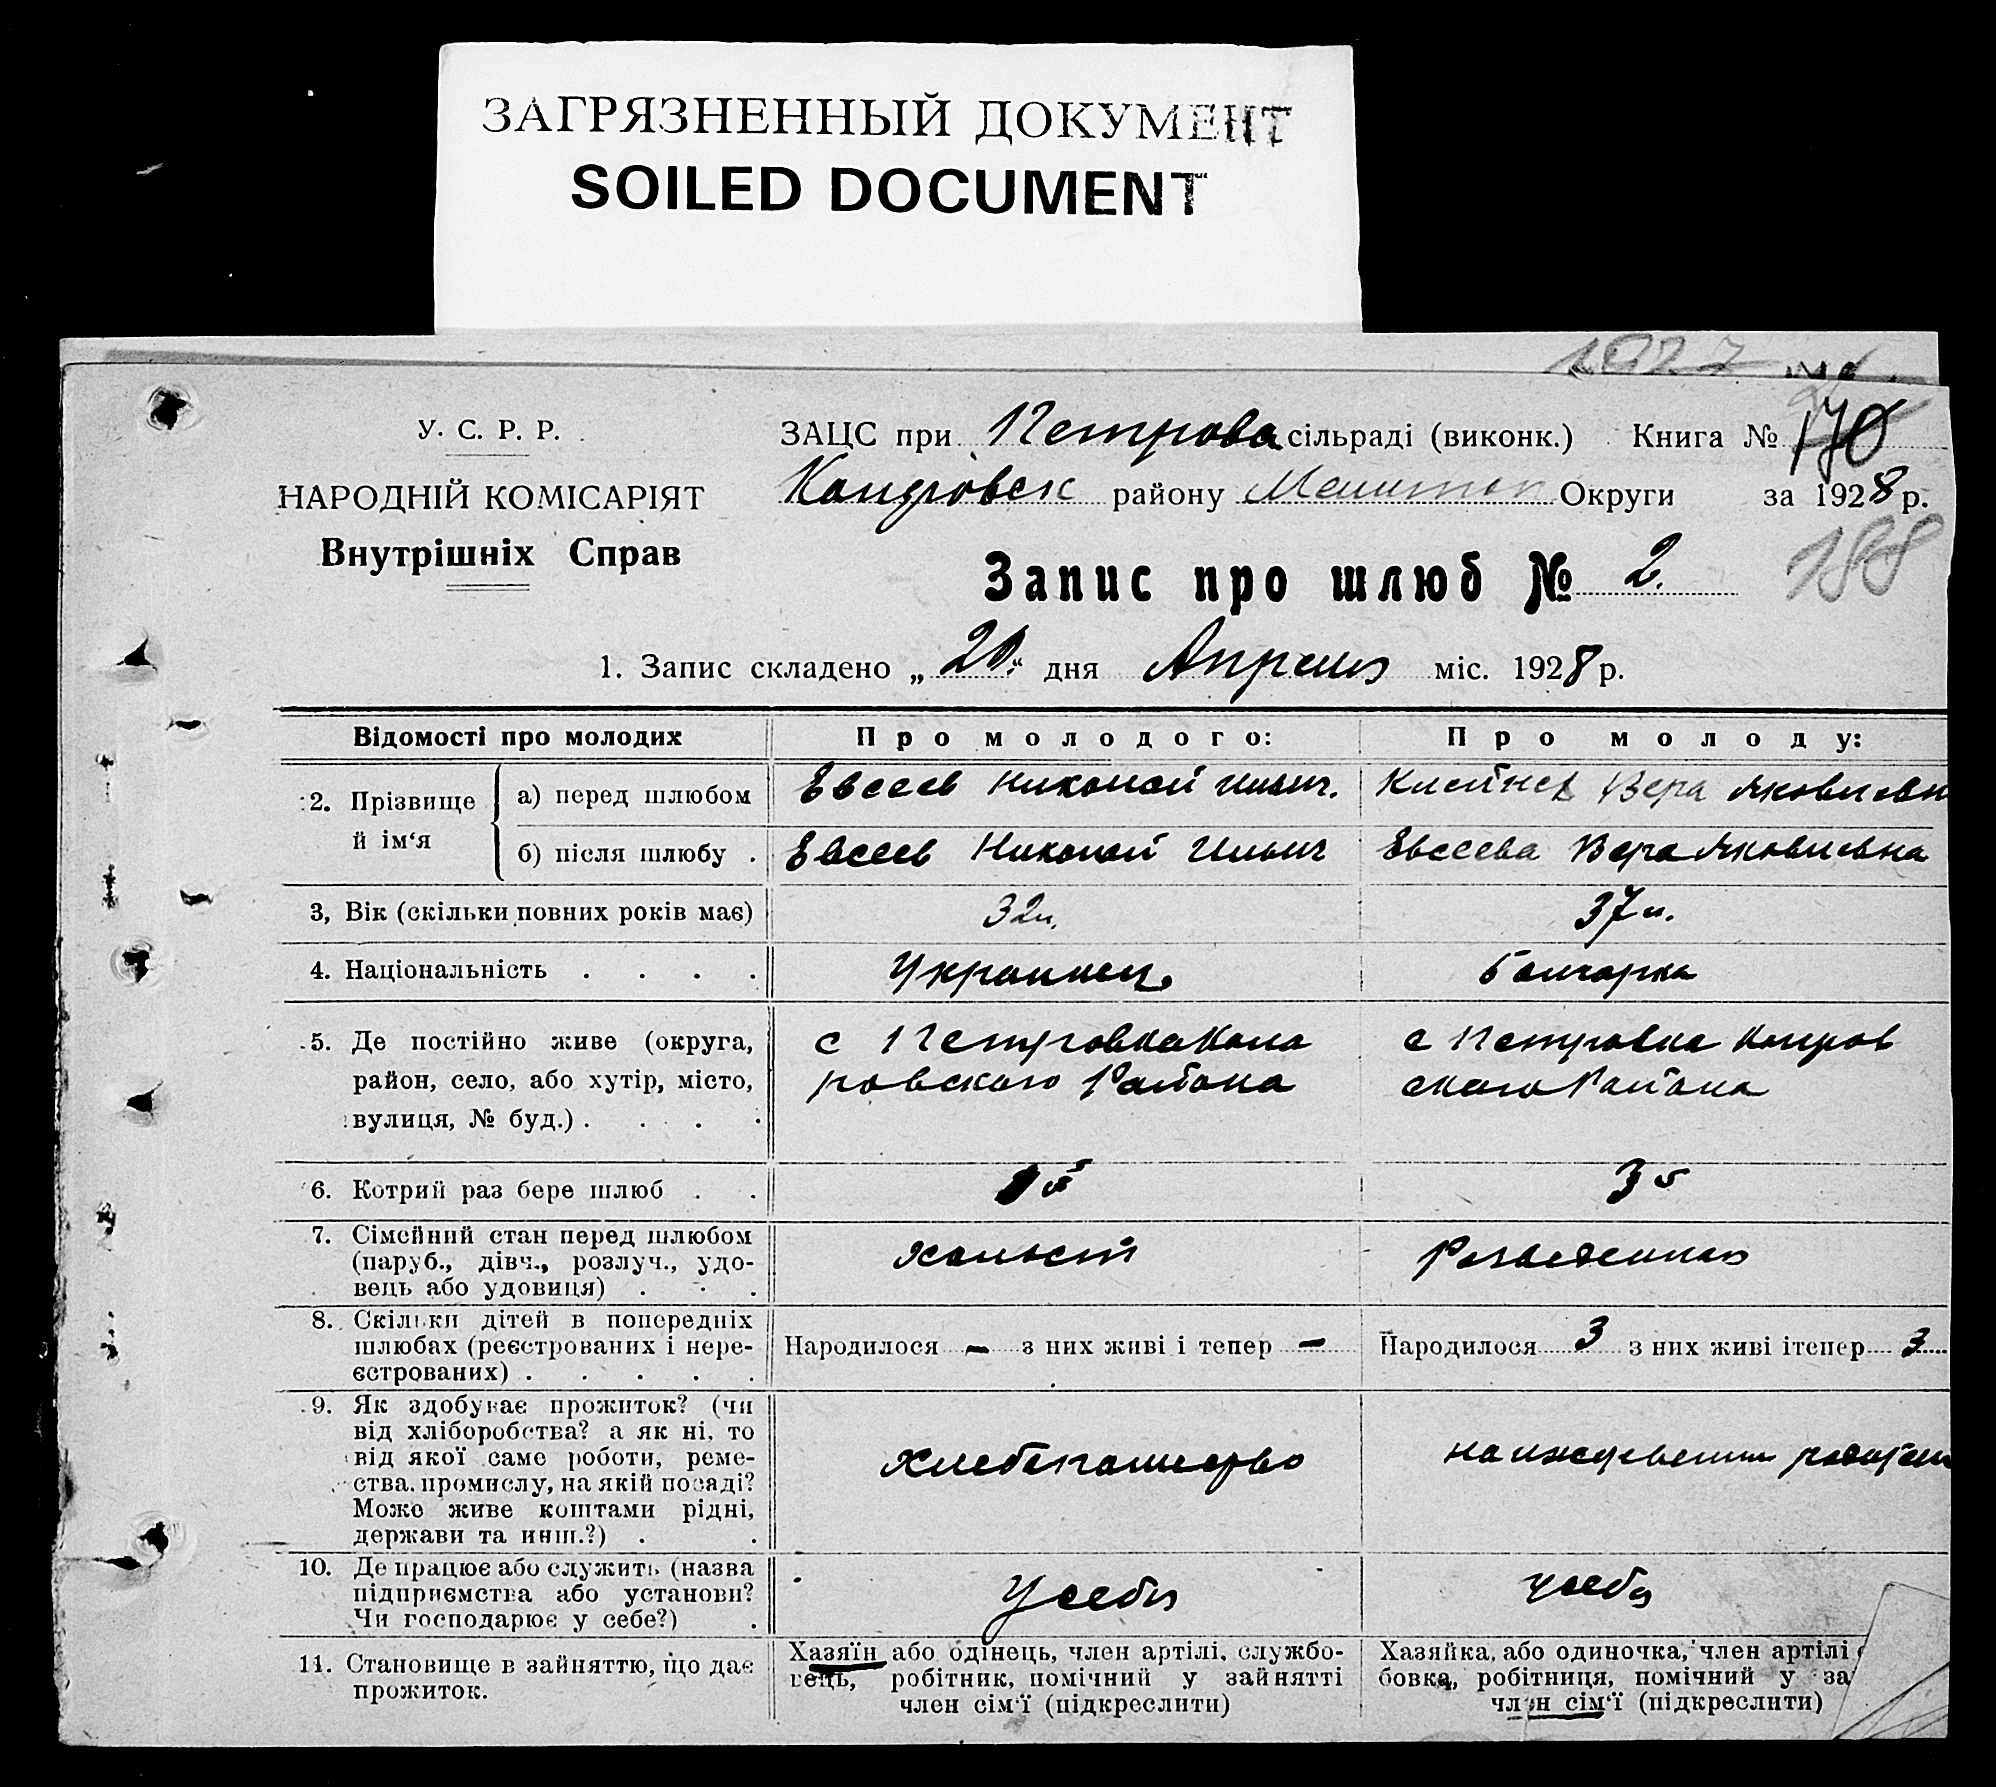 ЗАГРЯЗНЕННЫЙ ДОКУМЕНТ
SOILED DOCUMENT
1927
У. С. Р. Р.
НАРОДНІЙ КОМІСАРІЯТ
Внутрішніх Справ
ЗАЦС при Петрова сільраді (виконк.) Книга №
району Округи за 1928 р.
188
Запис про шлюб № 2.
1. Запис складено „20“ дня Апреля міс. 1928 р.
Відомості про молодих Про молодого: Про молоду:
2. Прізвище й ім‘я
а) перед шлюбом Евсеев Николай Ильич. Вера Яковлевн
б) після шлюбу . Евсеев Николай Ильич Евсеева Вера Яковлевна
3, Вік (скільки повних років має) 32л. 37л.
4. Національність . . . . Украинец. Болгарка
5. Де постійно живе (округа, с Петровка с Петровка
район, село, або хутір, місто, ровского Района ского Района
вулиця, № буд.) . . . .
6. Котрий раз бере шлюб . . 1й 3й
7. Сімейний стан перед шлюбом
(паруб., дівч., розлуч., удо- холост Разведенная
вець або удовиця) . . .
8. Скільки дітей в попередніх
шлюбах (реєстрованих і нере- Народилося – з них живі і тепер – Народилося 3 з них живі ітепер 3
єстрованих) . . . . .
9. Як здобуває прожиток? (чи
від хліборобства? а як ні, то
від якої саме роботи, реме- Хлебопашество на иждевении
ства, промислу, на якій посаді?
Може живе коштами рідні,
держави та инш.?) . .
10. Де працює або служить (назва
підприємства або установи? У себя у себя
Чи господарює у себе?) .
11. Становище в зайняттю, що дає
прожиток.
Хазяїн або одінець, член артілі, службо-
вець, робітник, помічний у зайнятті
член сім‘ї (підкреслити)
Хазяйка, або одиночка, член артілі
бовка, робітниця, помічний у за
член сім‘ї (підкреслити)